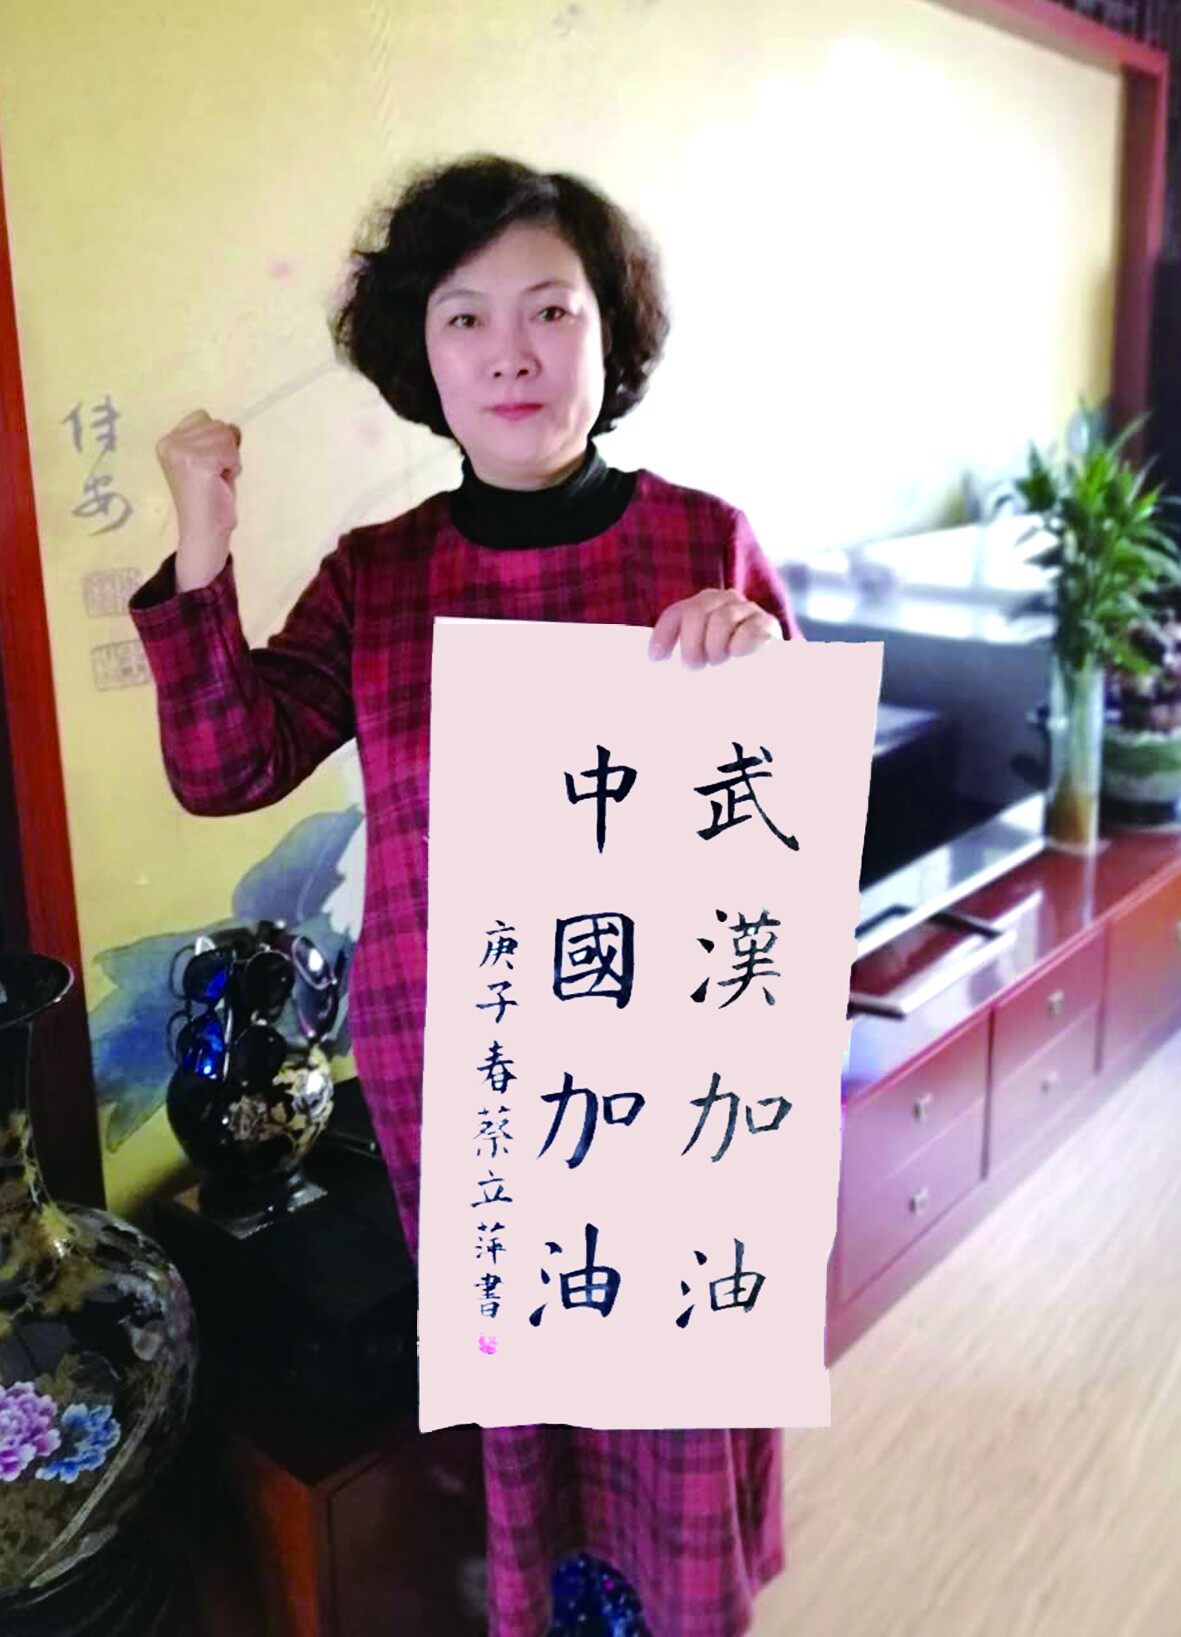 武漢加油
中國加油
庚子春蔡立萍書